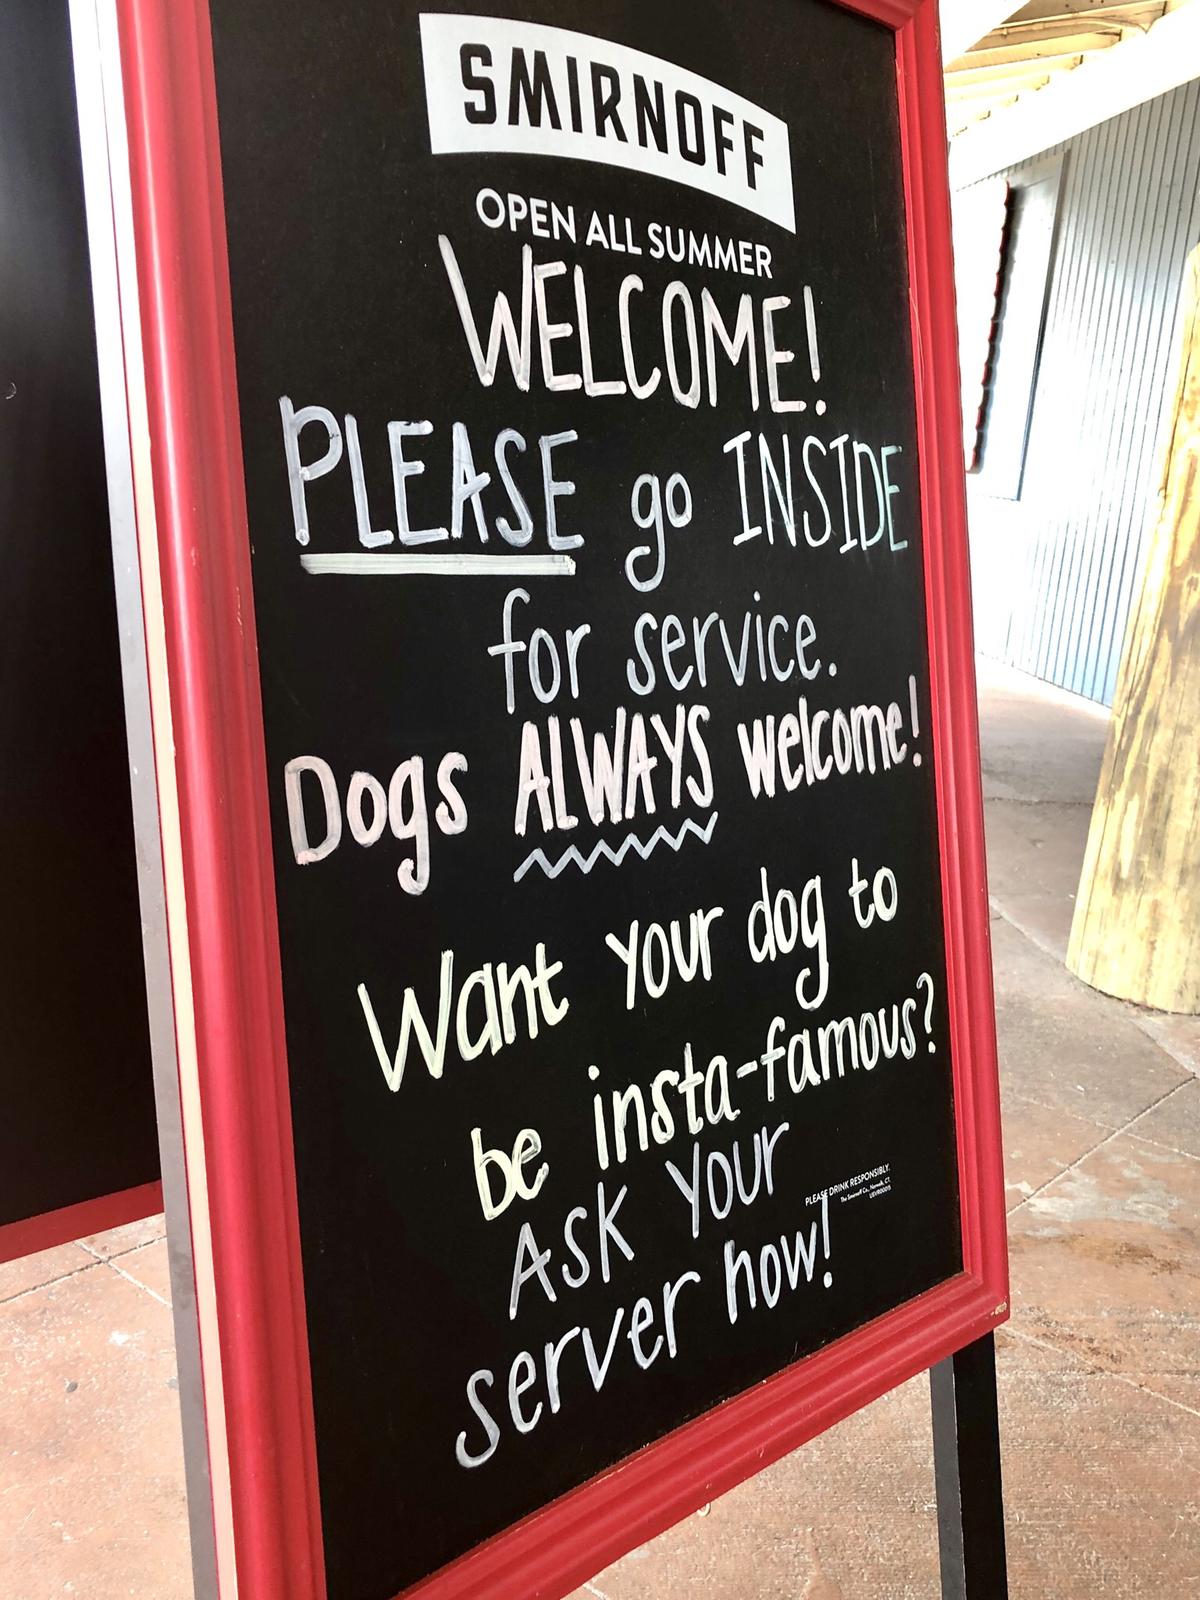 SMIRNOFF
OPEN ALL SUMMER
WELCOME!
PLEASE go INSIDE
for service.
Dogs ALWAYS welcome!
Want your dog to
be insta-famous?
Ask your
PLEASE DRINK RESPONSIBLY.
The Smirnoff Co., Norwalk, CT.
server now!